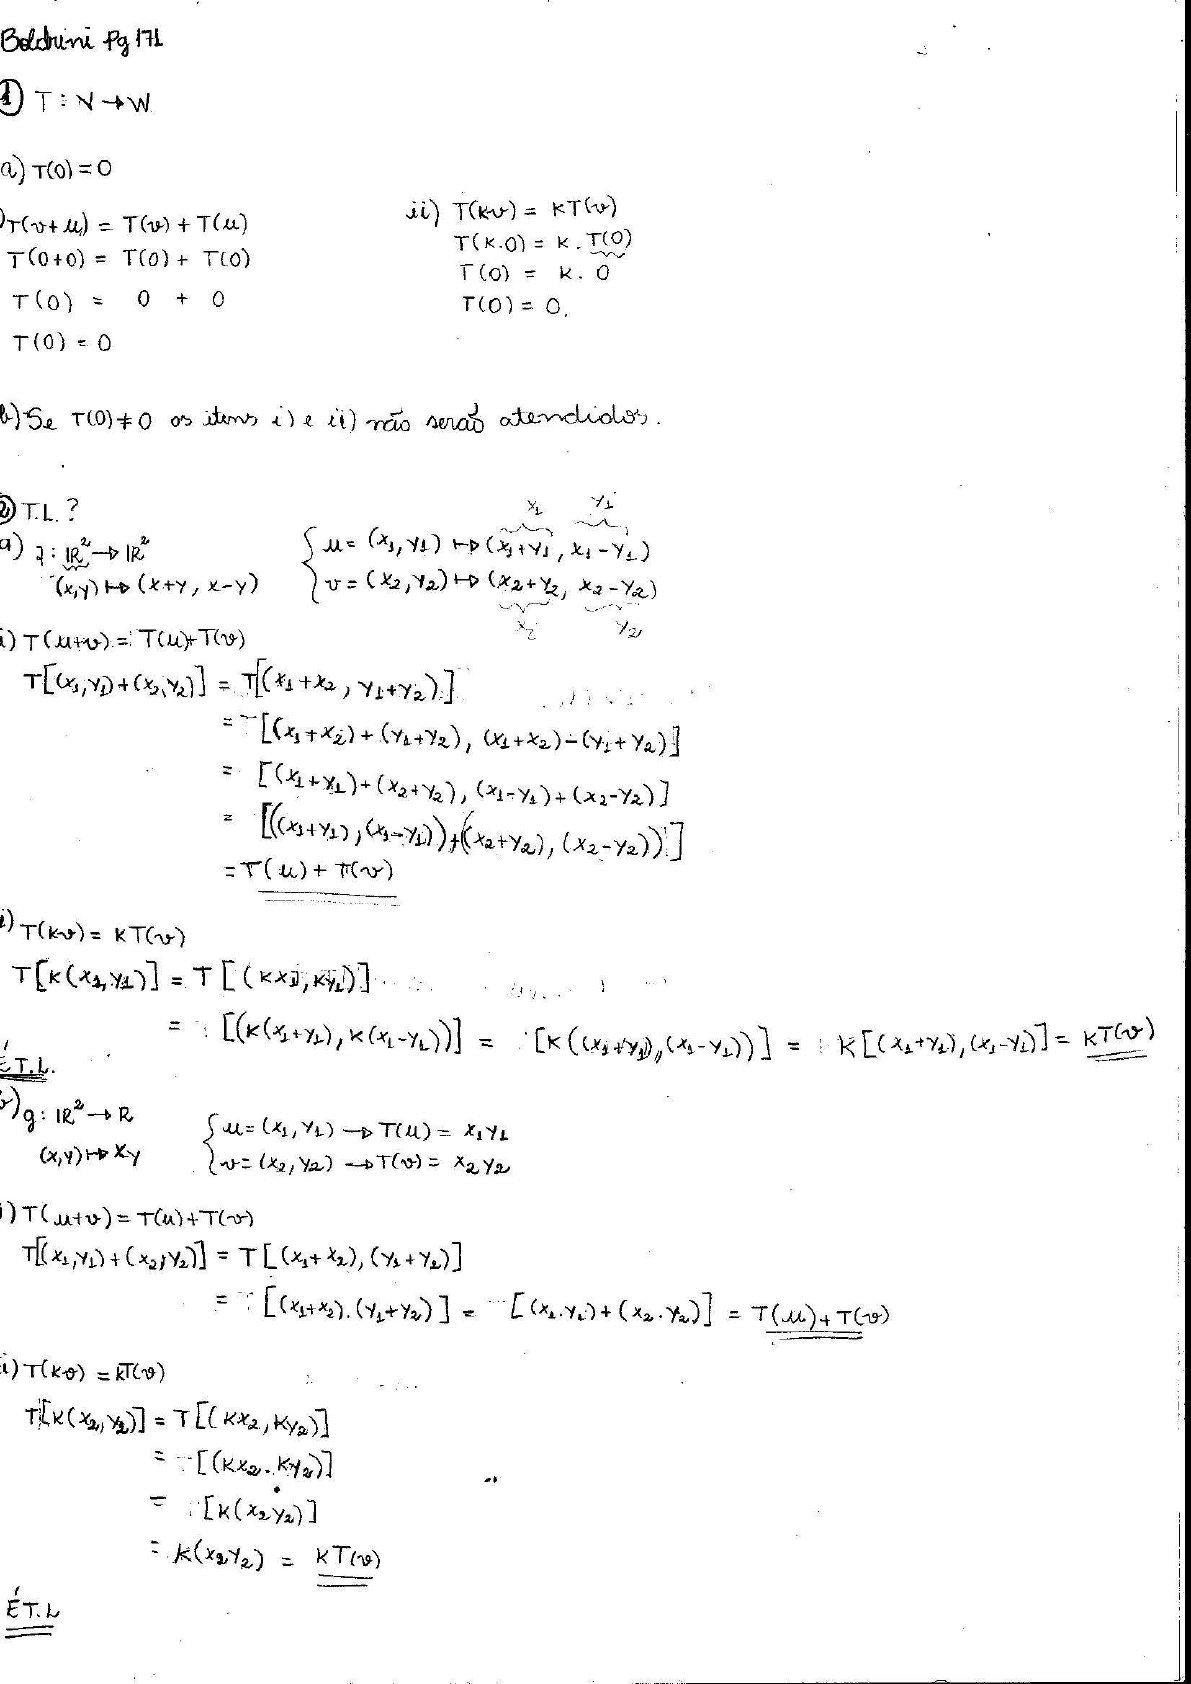 Boldrini Pg 171
1) T: V → W
a) T(0) = 0
) T(v+u) = T(v) + T(u)
T(0+0) = T(0) + T(0)
T(0) = 0 + 0
T(0) = 0
ii) T(kv) = kT(v)
T(k.0) = k. T(0)
T(0) = k. 0
T(0) = 0.
b) Se T(0) ≠ 0 os itens i) e ii) não serão atendidos.
2) T.L.?
a) f: IR² → IR²
(x,y) ↦ (x+y, x-y)
x₁ y₁
{ u = (x₁, y₁) ↦ (x₁+y₁, x₁-y₁)
v = (x₂, y₂) ↦ (x₂+y₂, x₂-y₂)
x₂ y₂
i) T(u+v) = T(u)+T(v)
T[(x₁,y₁)+(x₂,y₂)] = T[(x₁+x₂, y₁+y₂)]
= [(x₁+x₂)+(y₁+y₂), (x₁+x₂)-(y₁+y₂)]
= [(x₁+y₁)+(x₂+y₂), (x₁-y₁)+(x₂-y₂)]
= [((x₁+y₁),(x₁-y₁))+((x₂+y₂),(x₂-y₂))]
= T(u) + T(v)
i) T(kv) = kT(v)
T[k(x₁,y₁)] = T[(kx₁, ky₁)]
= [(k(x₁+y₁), k(x₁-y₁))] = [k((x₁+y₁),(x₁-y₁))] = k[(x₁+y₁),(x₁-y₁)] = kT(v)
É T.L.
b) g: IR² → R
(x,y) ↦ xy
{ u = (x₁, y₁) → T(u) = x₁y₁
v = (x₂, y₂) → T(v) = x₂y₂
i) T(u+v) = T(u)+T(v)
T[(x₁,y₁)+(x₂,y₂)] = T[(x₁+x₂),(y₁+y₂)]
= [(x₁+x₂).(y₁+y₂)] = [(x₁.y₁)+(x₂.y₂)] = T(u)+T(v)
i) T(kv) = kT(v)
T[k(x₂,y₂)] = T[(kx₂, ky₂)]
= [(kx₂.ky₂)]
= [k(x₂y₂)]
= k(x₂y₂) = kT(v)
É T.L